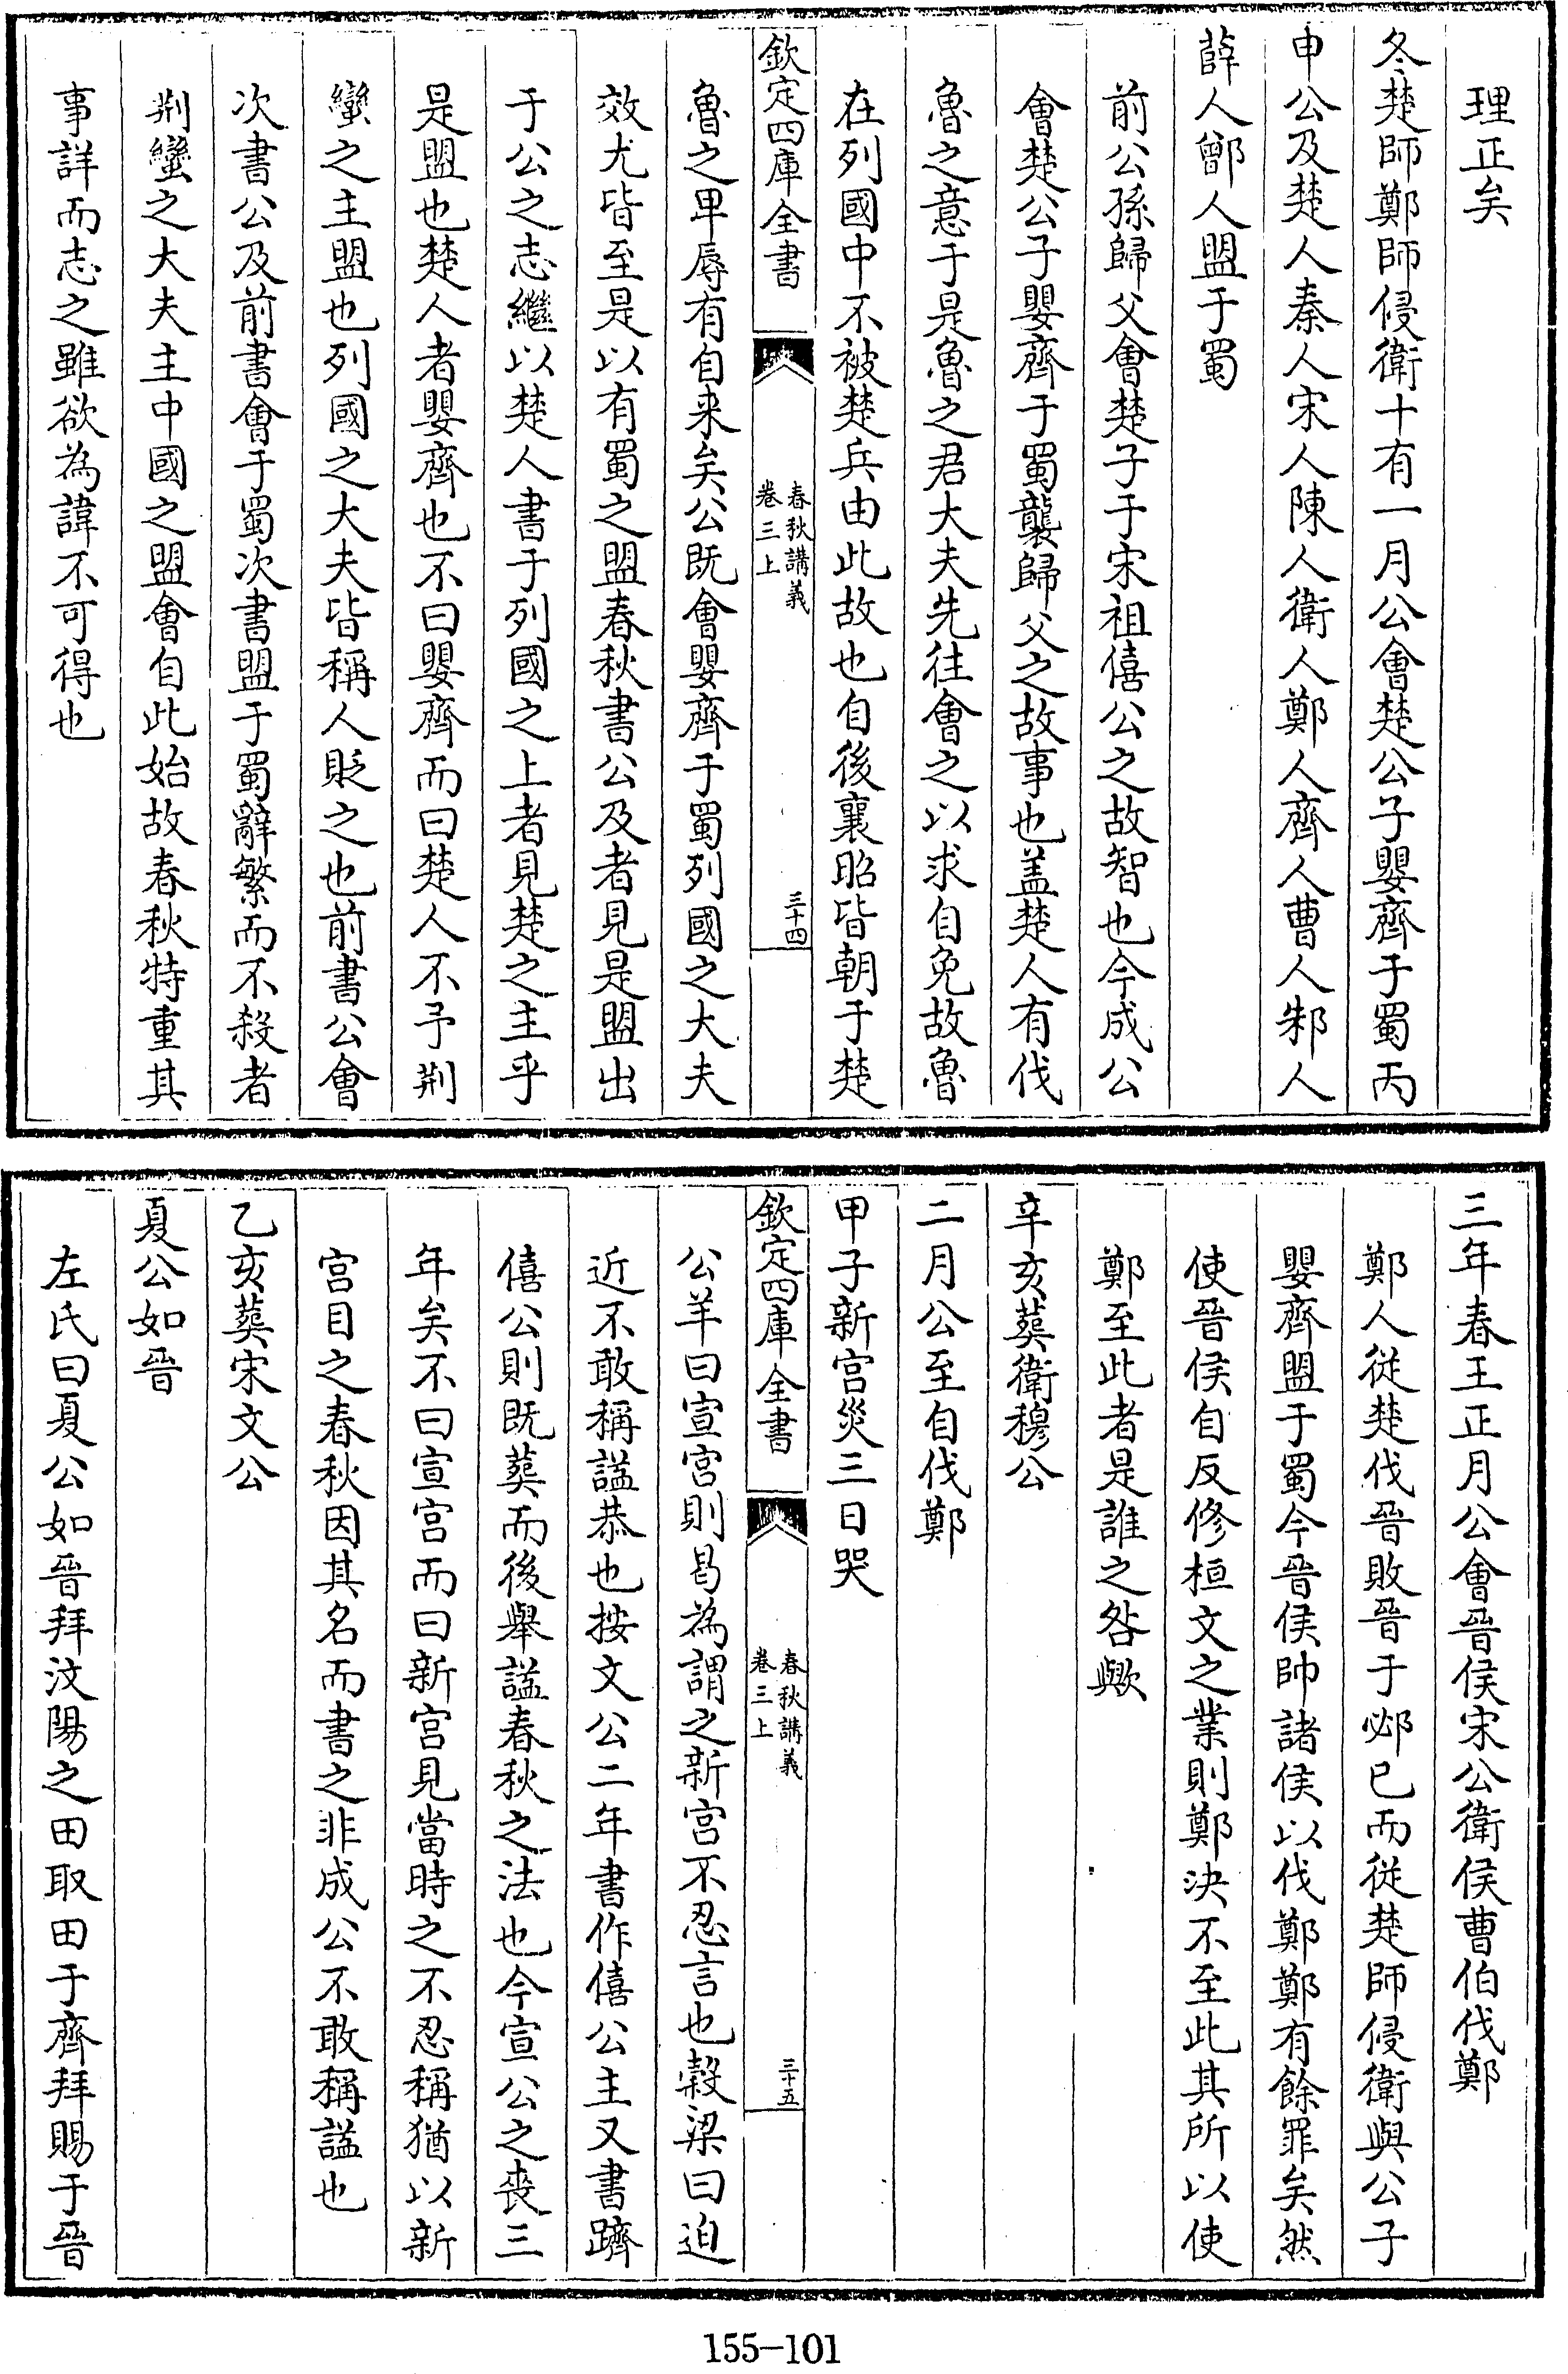 理正矣
冬楚師鄭師侵衛十有一月公會楚公子嬰齊于蜀丙
申公及楚人秦人宋人陳人衛人鄭人齊人曹人邾人
薛人鄫人盟于蜀
前公孫歸父會楚子于宋祖僖公之故智也今成公
會楚公子嬰齊于蜀襲歸父之故事也盖楚人有伐
魯之意于是魯之君大夫先往會之以求自免故魯
在列國中不被楚兵由此故也自後襄昭皆朝于楚
欽定四庫全書
春秋講義
卷三上
三十四
魯之卑辱有自来矣公既會嬰齊于蜀列國之大夫
效尤皆至是以有蜀之盟春秋書公及者見是盟出
于公之志繼以楚人書于列國之上者見楚之主乎
是盟也楚人者嬰齊也不曰嬰齊而曰楚人不予荆
蠻之主盟也列國之大夫皆稱人貶之也前書公會
次書公及前書會于蜀次書盟于蜀辭繁而不殺者
荆蠻之大夫主中國之盟會自此始故春秋特重其
事詳而志之雖欲為諱不可得也
三年春王正月公會晉侯宋公衛侯曹伯伐鄭
鄭人從楚伐晉敗晉于邲已而從楚師侵衛與公子
嬰齊盟于蜀今晉侯帥諸侯以伐鄭鄭有餘罪矣然
使晉侯自反修桓文之業則鄭決不至此其所以使
鄭至此者是誰之咎歟
辛亥葬衛穆公
二月公至自伐鄭
甲子新宫災三日哭
欽定四庫全書
春秋講義
卷三上
三十五
公羊曰宣宫則曷為謂之新宫不忍言也榖梁曰迫
近不敢稱諡恭也按文公二年書作僖公主又書躋
僖公則既葬而後舉諡春秋之法也今宣公之喪三
年矣不曰宣宫而曰新宫見當時之不忍稱猶以新
宫目之春秋因其名而書之非成公不敢稱諡也
乙亥葬宋文公
夏公如晉
左氏曰夏公如晉拜汶陽之田取田于齊拜賜于晉
155-101